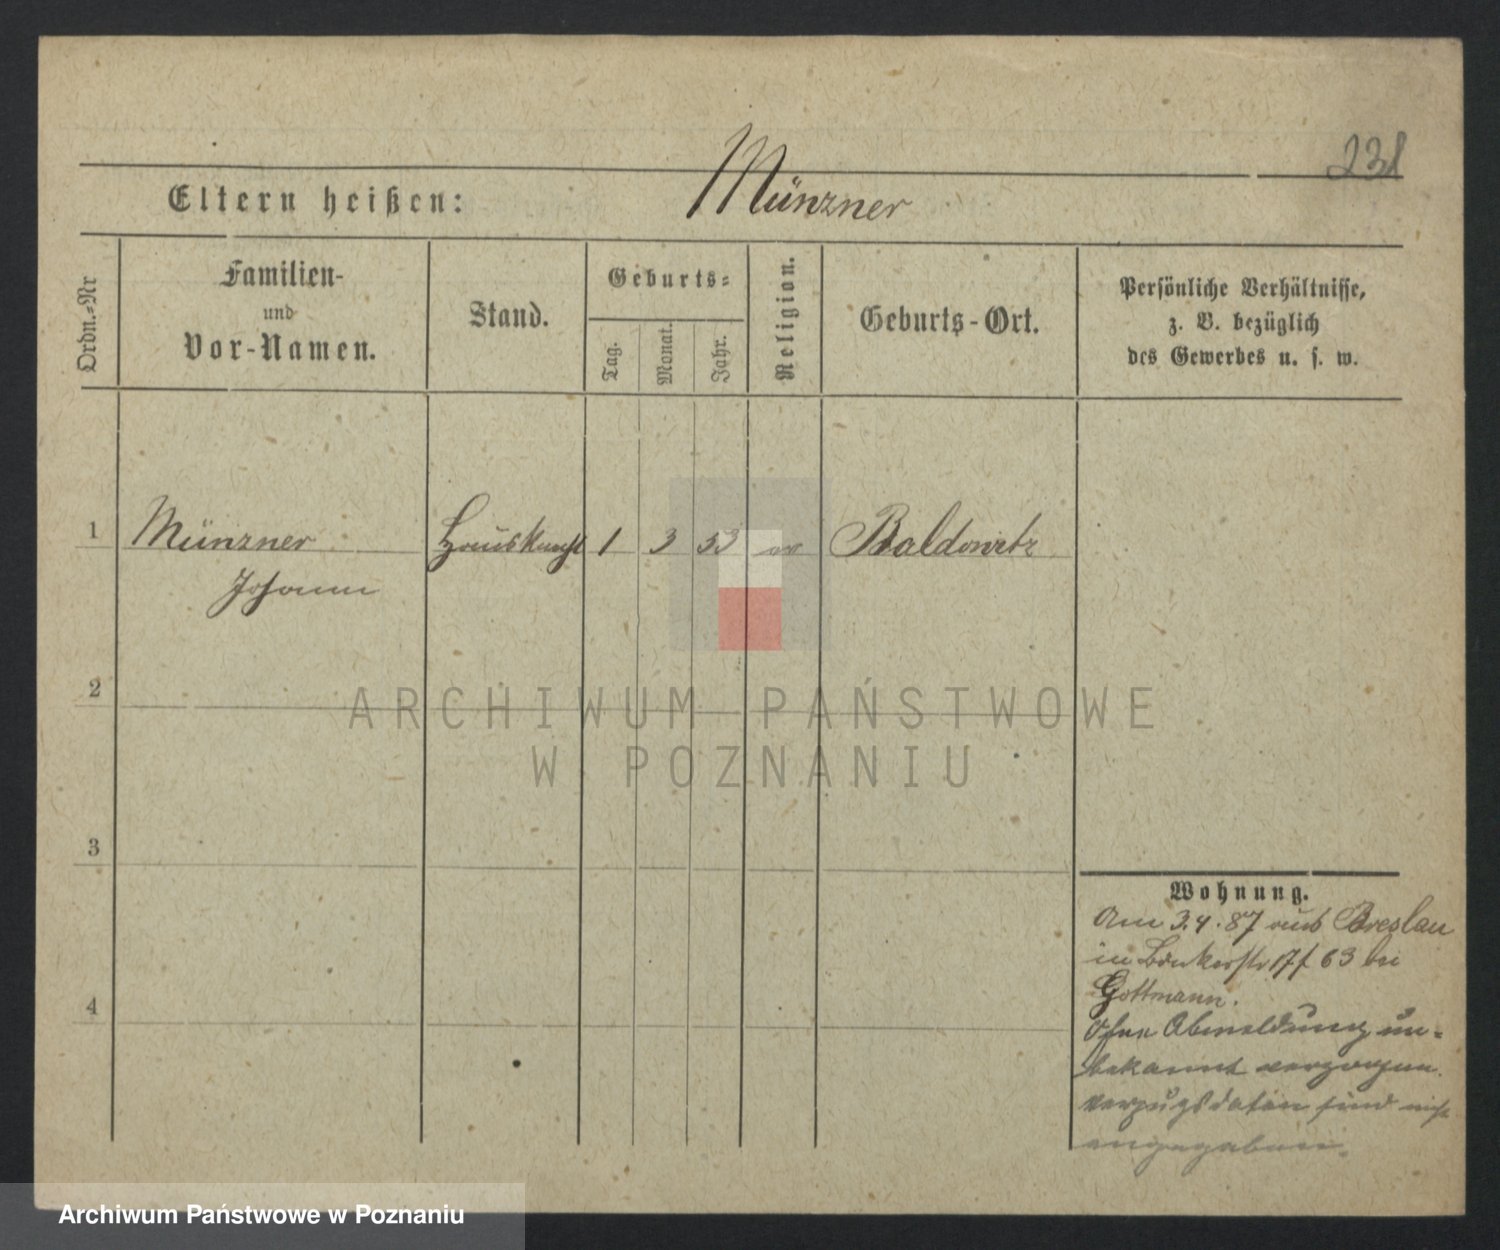 231
Eltern heißen: Münzner
Ordn.=Nr
Familien-
und
Vor-Namen.
Stand.
Geburts=
Tag.
Monat.
Jahr.
Religion.
Geburts-Ort.
Persönliche Verhältnisse,
z. B. bezüglich
des Gewerbes u. s. w.
1 Münzner Hausknecht 1 3 53 ev Baldowitz
Johann
2
ARCHIWUM PAŃSTWOWE
W POZNANIU
3
4
Wohnung.
Am 3.4.87 aus Breslau
in 63 bei
Gottmann.
Ohne Abmeldung un-
bekannt verzogen.
Verzugsdaten sind nicht
angegeben.
Archiwum Państwowe w Poznaniu